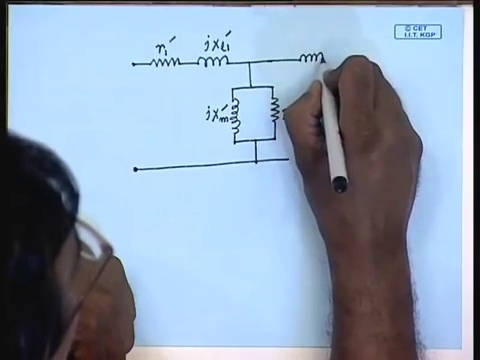 © CET
I.I.T. KGP
r₁′ jx′ℓ₁
jx′m